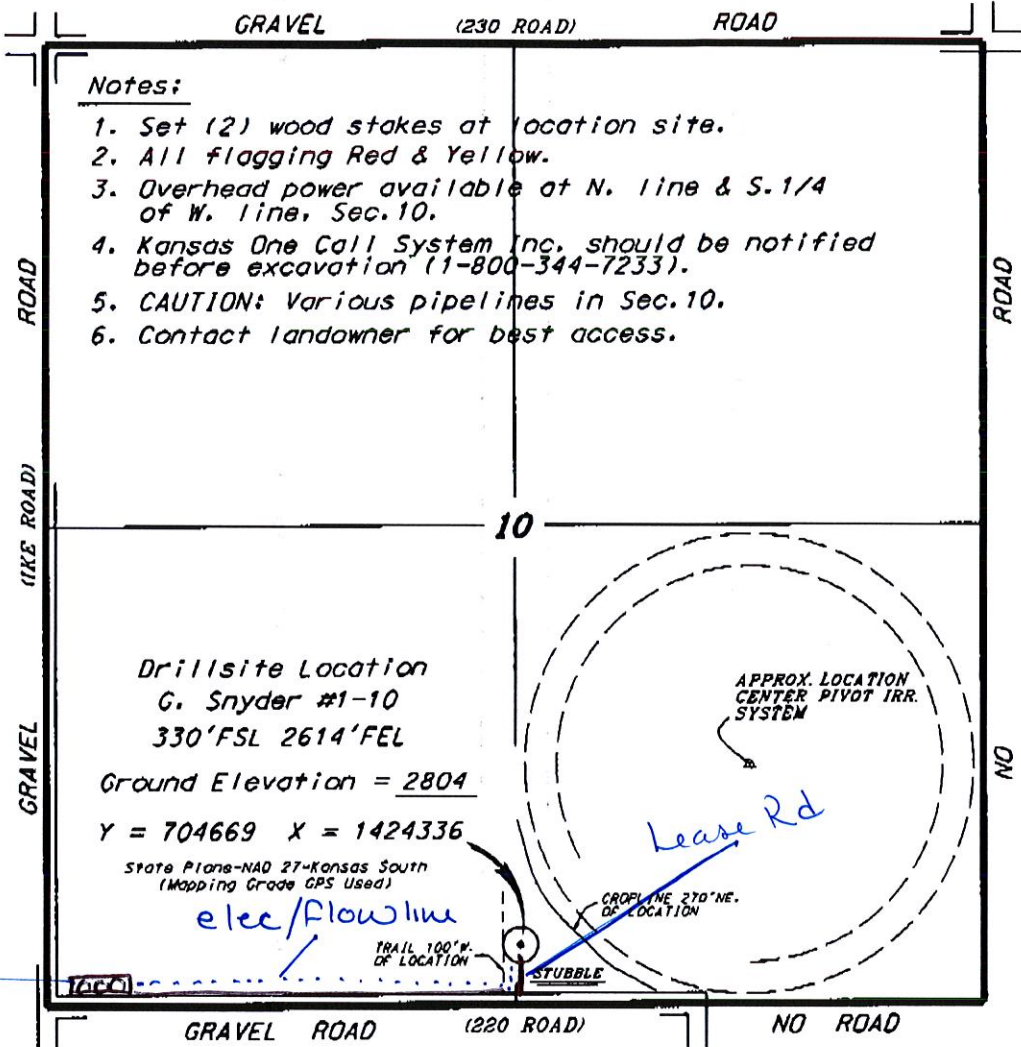 GRAVEL (230 ROAD) ROAD
Notes:
1. Set (2) wood stakes at location site.
2. All flagging Red & Yellow.
3. Overhead power available at N. line & S.1/4
of W. line, Sec.10.
4. Kansas One Call System Inc. should be notified
before excavation (1-800-344-7233).
5. CAUTION: Various pipelines in Sec.10.
6. Contact landowner for best access.
ROAD
(IKE ROAD)
GRAVEL
ROAD
NO
10
Drillsite Location
G. Snyder #1-10
330'FSL 2614'FEL
Ground Elevation = 2804
Y = 704669 X = 1424336
State Plane-NAD 27-Kansas South
(Mapping Grade GPS Used)
elec/flowline
APPROX. LOCATION
CENTER PIVOT IRR.
SYSTEM
Lease Rd
CROPLINE 270'NE.
OF LOCATION
TRAIL 100'W.
OF LOCATION
STUBBLE
GRAVEL ROAD (220 ROAD) NO ROAD